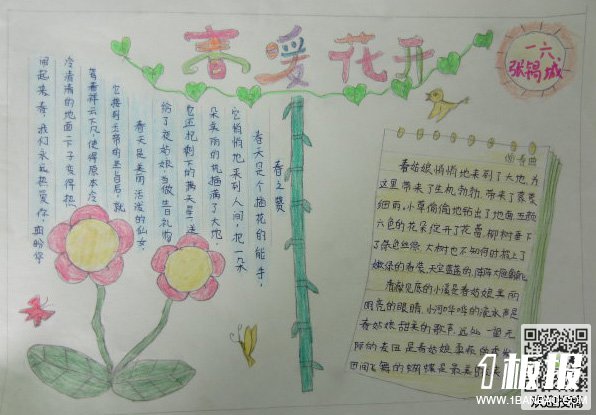 春暖花开
一六、
张锡城
春之赞
春天是个插花的能手，
它悄悄地来到人间，把一朵
朵美丽的花插满了大地，
它还把剩下的满天星，送
给了夜姑娘当做生日礼物
春天是美丽活泼的仙女，
它接到玉帝的圣旨后，就
驾着祥云下凡，使得原本冷
冷清清的地面一下子变得热
闹起来。春，我们永远热爱你，
春姑娘悄悄地来到了大地，为
这里带来了生机勃勃，带来了蒙蒙
细雨，小草偷偷地钻出了地面，五颜
六色的花朵绽开了花蕾，柳树垂下
了绿色丝绦，大树也不知何时披上了
嫩绿的新装，天空蓝蓝的，阵阵大雁
见底的小溪是春姑娘美丽
明亮的眼睛，小河哗哗的流水声是
春姑娘甜美的歌声，一望无
际的麦田是春姑娘
飞舞的蝴蝶是最美的
1板报
WWW.1BANBAO.COM
欢迎投稿